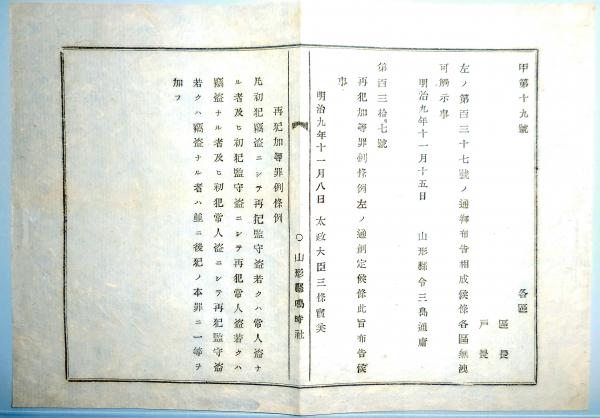 甲第十九號
各區
區長
戸長
左ノ第百三十七號ノ通御布告相成候條各區無洩
可觸示事
明治九年十一月十五日　山形縣令三島通庸
第百三拾七號
再犯加等罪例條例左ノ通創定候條此旨布告候
事
明治九年十一月八日　太政大臣三條實美
○山形縣鳴時社
再犯加等罪例條例
凡初犯竊盗ニシテ再犯監守盗若クハ常人盗ナ
ル者及ヒ初犯監守盗ニシテ再犯常人盗若クハ
竊盗ナル者及ヒ初犯常人盗ニシテ再犯監守盗
若クハ竊盗ナル者ハ並ニ後犯ノ本罪ニ一等ヲ
加フ